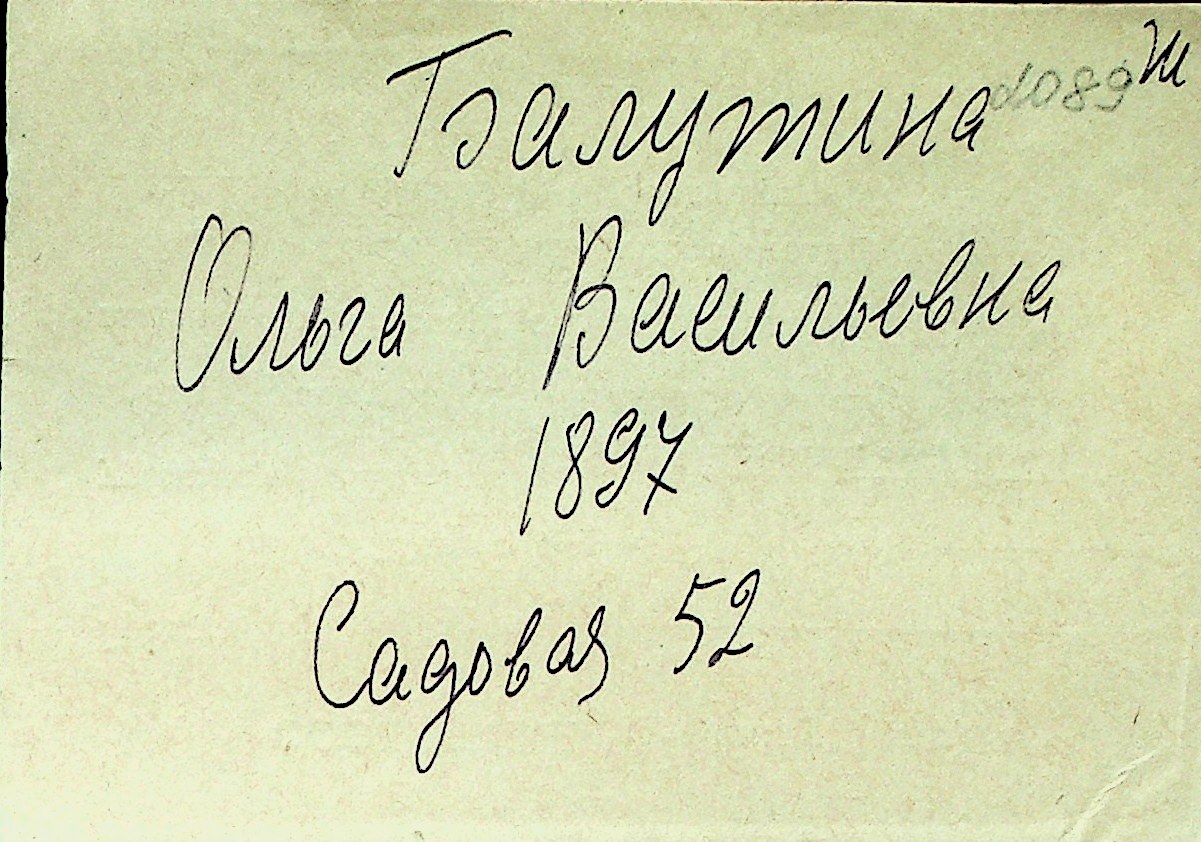 Балутина
Ольга Васильевна
1897
Садовая 52